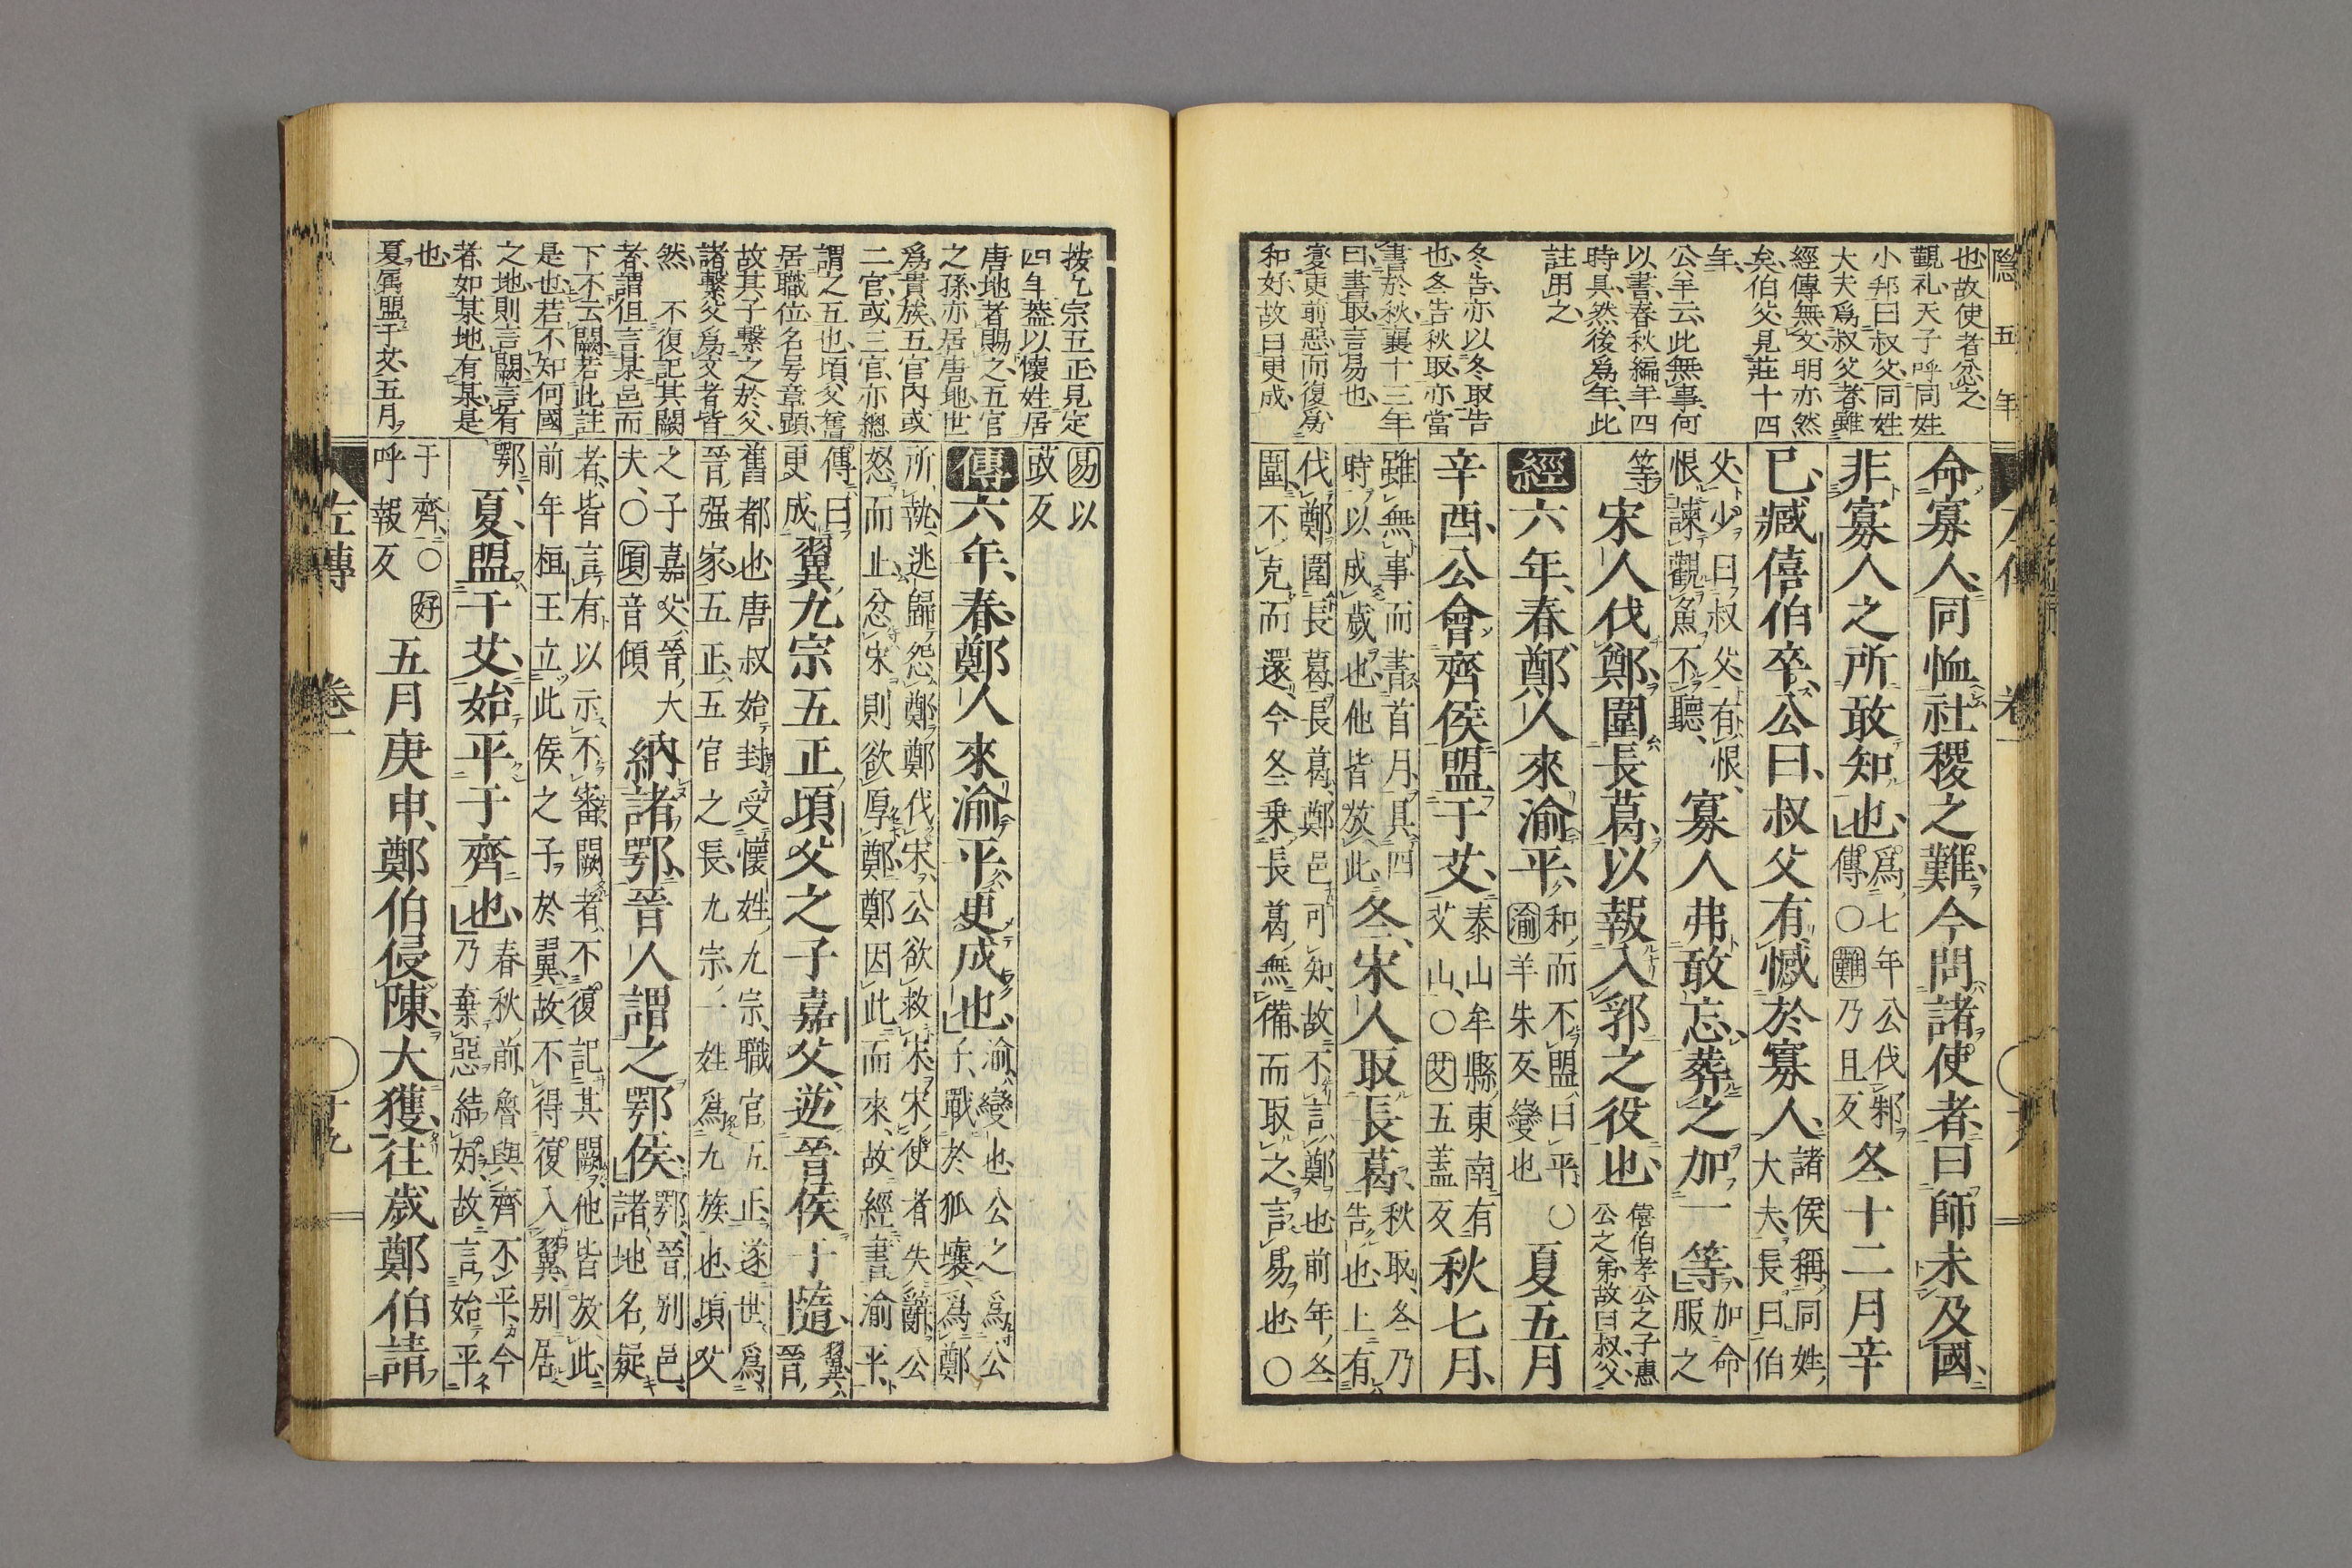 隱 五 年
也故使者忿之
觀礼天子呼同姓
小邦曰叔父同姓
大夫爲叔父者雖
經傳無文明亦然
矣伯父見莊十四
年
公羊云此無事何
以書春秋編年四
時具然後爲年此
註用之
冬告亦以冬取告
也冬告秋取亦當
書於秋襄十三年
曰書取言易也
憂更前惡而復爲
和好故曰更成
命寡人同恤社稷之難今問諸使者曰師未及國
非寡人之所敢知也
爲七年公伐邾
傳〇難乃且反
冬十二月辛
巳臧僖伯卒公曰叔父有憾於寡人
諸侯稱同姓
大夫長曰伯
父少曰叔父有恨
恨諫觀魚不聽
寡人弗敢忘葬之加一等
加命
服之
等
宋人伐鄭圍長葛以報入郛之役也
僖伯孝公之子惠
公之弟故曰叔父
經六年春鄭人來渝平
和而不盟曰平〇
渝羊朱反變也
夏五月
辛酉公會齊侯盟于艾
泰山牟縣東南有
艾山〇艾五蓋反
秋七月
雖無事而書首月具四
時以成歲也他皆放此
冬宋人取長葛
秋取冬乃
告也上有
伐鄭圍長葛長葛鄭邑可知故不言鄭也前年冬
圍不克而還今冬乘長葛無備而取之言易也〇
按九宗五正見定
四年蓋以懷姓居
唐地者賜之五官
之孫亦居唐地世
爲貴族五官內或
二官或三官亦總
謂之五也頃父舊
居職位名号章顯
故其子繫之於父
諸繫父爲父者皆
然 不復記其闕
者謂徂言某邑而
下不云闕若此註
是也若不知何國
之地則言闕言有
者如某地有某是
也
夏屬盟于艾五月
易以
豉反
傳六年春鄭人來渝平更成也
渝變也公之爲公
子戰於狐壤爲鄭
所執逃歸怨鄭鄭伐宋公欲救宋宋使者失辭公
怒而止忿宋則欲厚鄭鄭因此而來故經書渝平
傳曰
更成
翼九宗五正頃父之子嘉父逆晉侯于隨
翼
晉
舊都也唐叔始封受懷姓九宗職官五正遂世爲
晉强家五正五官之長九宗一姓爲九族也頃父
之子嘉父晉大
夫〇頃音傾
納諸鄂晉人謂之鄂侯
鄂晉別邑
諸地名疑
者皆言有以示不審闕者不復記其闕他皆放此
前年桓王立此侯之子於翼故不得復入翼別居
鄂
夏盟于艾始平于齊也
春秋前魯與齊不平今
乃棄惡結好故言始平
于齊〇好
呼報反
五月庚申鄭伯侵陳大獲往歲鄭伯請
左傳 卷一 十九